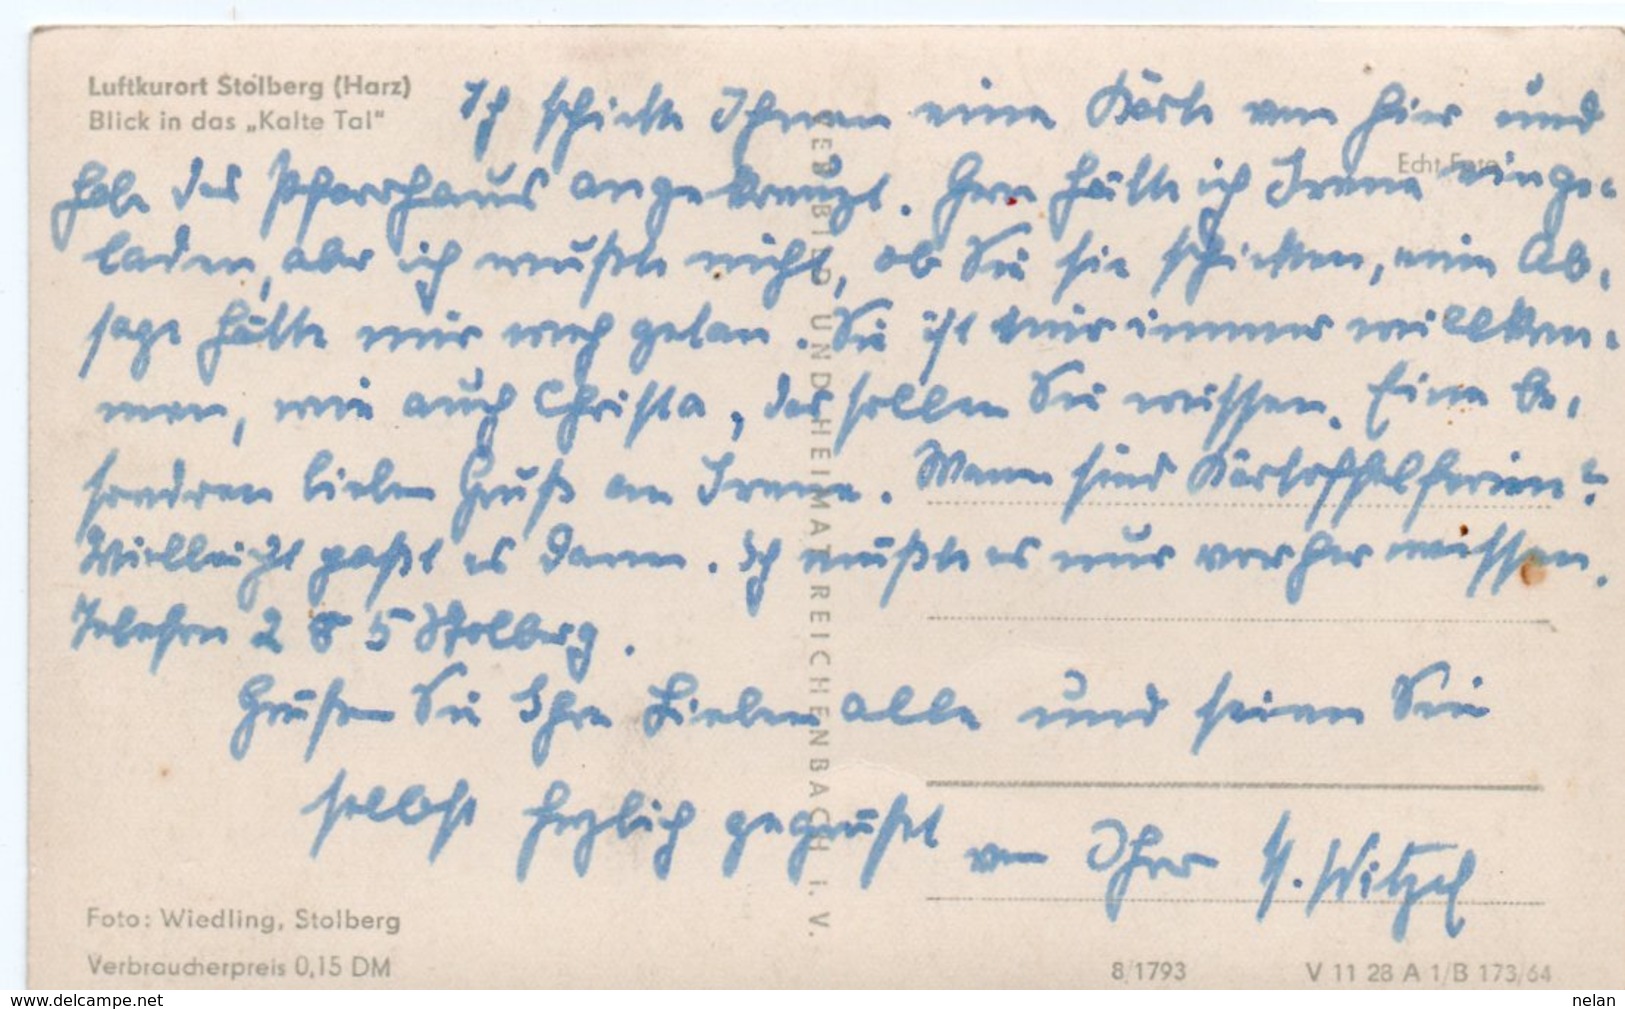 Luftkurort Stolberg (Harz)
Blick in das „Kalte Tal"
Echt Foto
Ich schickte Ihnen eine Karte von hier und
habe das Pfarrhaus angekreuzt. Gern hätte ich Irene einge-
laden, aber ich wußte nicht, ob Sie sie schicken, eine Ab-
sage hätte mir weh getan. Sie ist mir immer willkom-
men, wie auch Christa, das sollen Sie wissen. Einen be-
sonderen lieben Gruß an Irene. Wann sind Kartoffelferien?
Vielleicht paßt es dann. Ich müßte es nur vorher wissen.
Telefon 285 Stolberg.
Grüßen Sie Ihre Lieben alle und seien Sie
selbst herzlich gegrüßt von Ihrer
VEB BILD UND HEIMAT REICHENBACH I. V.
Foto: Wiedling, Stolberg
Verbraucherpreis 0,15 DM
8/1793
V 11 28 A 1/B 173/64
www.delcampe.net
nelan